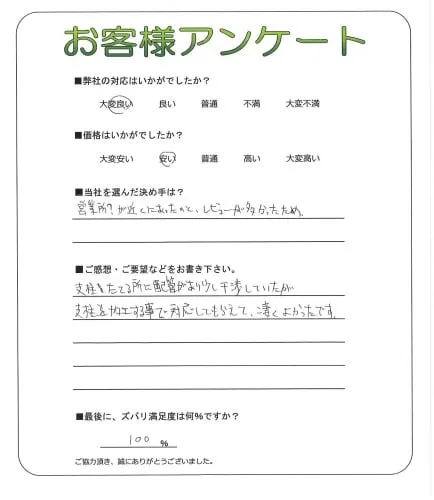 お客様アンケート
■弊社の対応はいかがでしたか？
大変良い 良い 普通 不満 大変不満
■価格はいかがでしたか？
大変安い 安い 普通 高い 大変高い
■当社を選んだ決め手は？
営業所？が近くにあったのと、レビューが多かったため。
■ご感想・ご要望などをお書き下さい。
支柱をたてる所に配管があり少し干渉していたが
支柱を加工する事で対応してもらえて、凄くよかったです。
■最後に、ズバリ満足度は何％ですか？
100 ％
ご協力頂き、誠にありがとうございました。